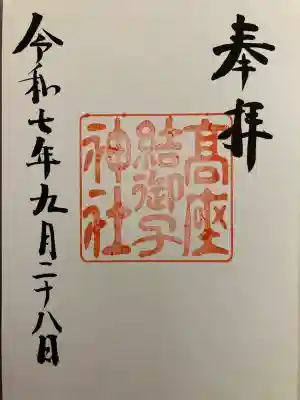 奉拝
高座
結御子
神社
令和七年九月二十八日